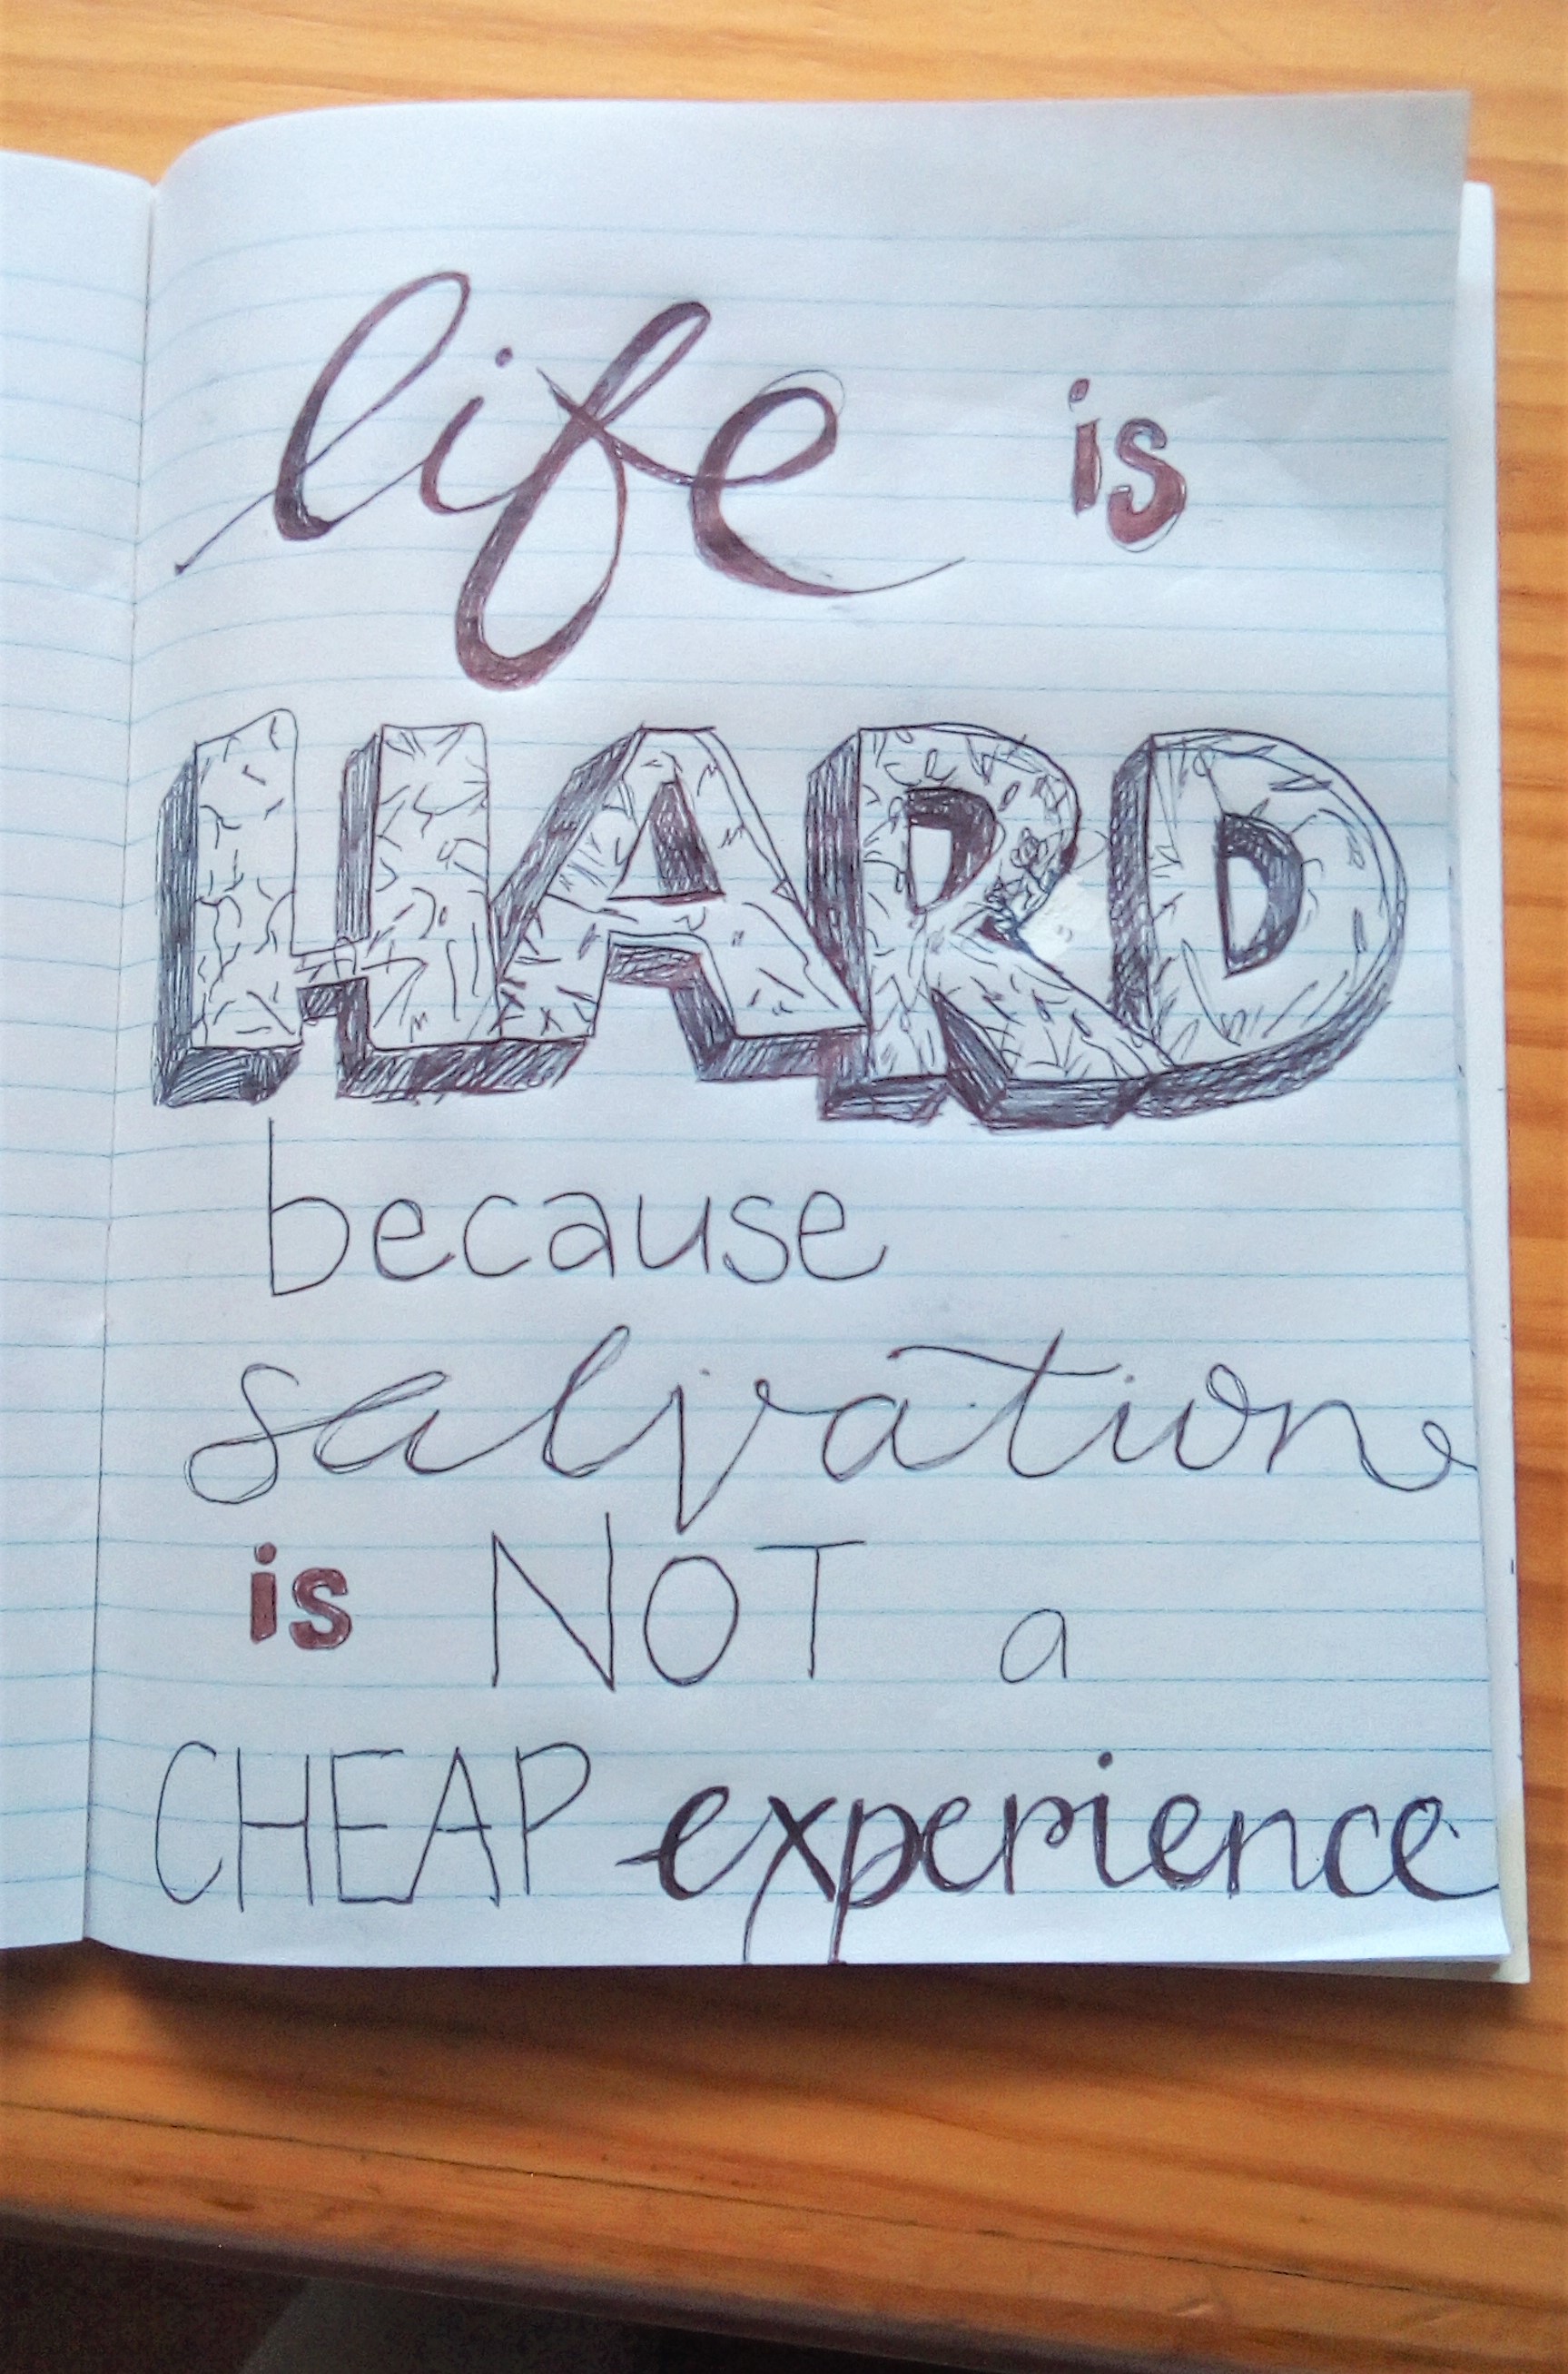 life is
HARD
because
salvation
is NOT a
CHEAP experience